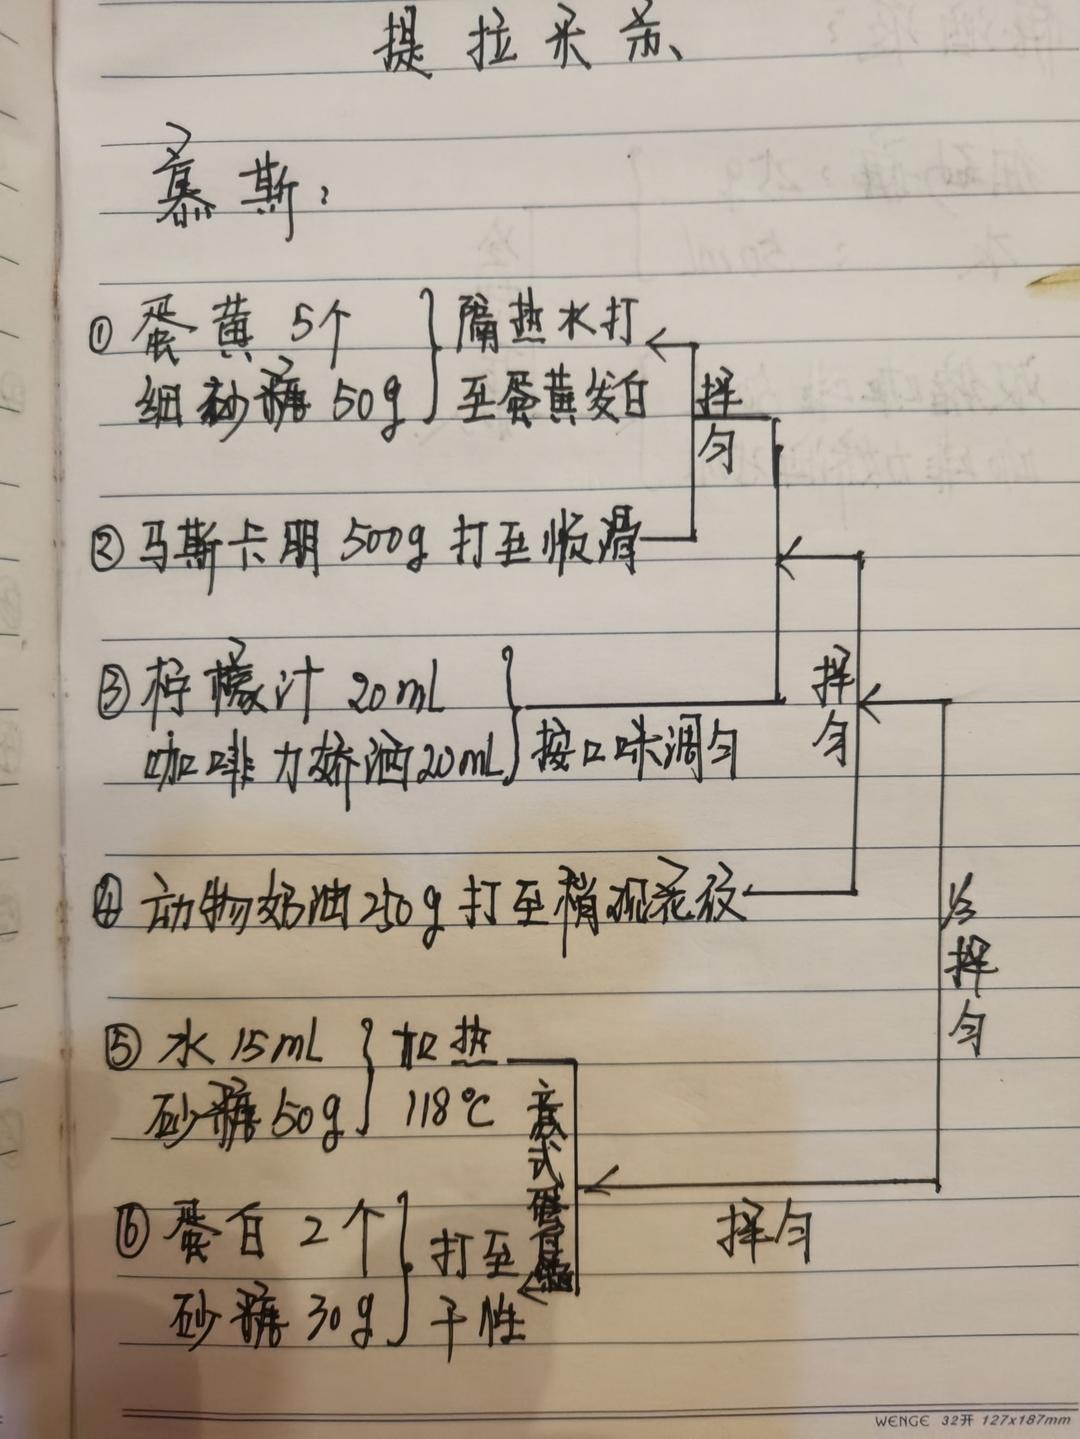 提拉米苏
慕斯:
① 蛋黄 5个 隔热水打
细砂糖 50g 至蛋黄发白
拌匀
② 马斯卡朋 500g 打至顺滑
③ 柠檬汁 20mL
咖啡力娇酒20mL 按口味调匀
拌匀
④ 动物奶油250g 打至稍现花纹
⑤ 水 15mL 加热
砂糖 50g 118℃
意式蛋白霜
⑥ 蛋白 2个 打至
砂糖 30g 干性
拌匀
分拌匀
WENGE 32开 127x187mm